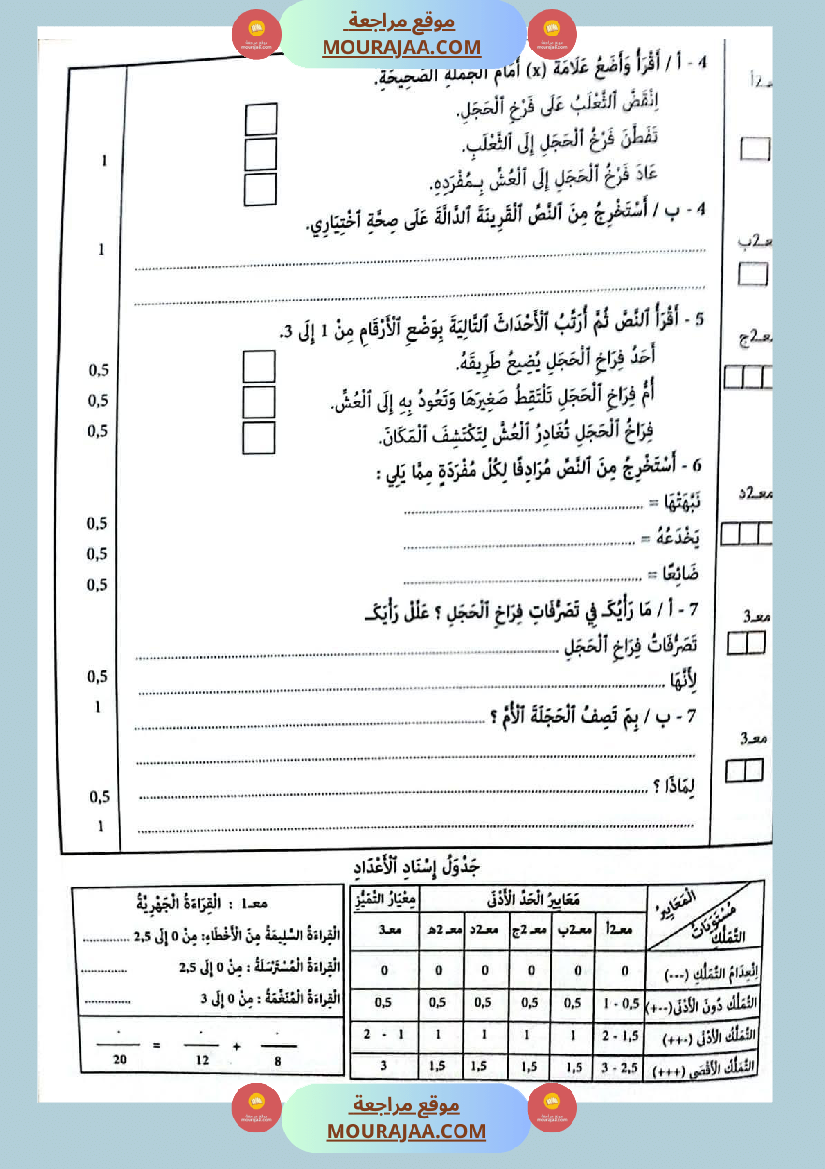 موقع مراجعة
MOURAJAA.COM
4 - أ / أَقْرَأُ وَأَضَعُ عَلَامَةَ (x) أَمَامَ الْجُمْلَةِ الصَّحِيحَةِ.
اِنْقَضَّ ٱلثَّعْلَبُ عَلَى فَرْخِ ٱلْحَجَلِ.
تَفَطَّنَ فَرْخُ ٱلْحَجَلِ إِلَى ٱلثَّعْلَبِ.
1
عَادَ فَرْخُ ٱلْحَجَلِ إِلَى ٱلْعُشِّ بِـمُفْرَدِهِ.
4 - ب / أَسْتَخْرِجُ مِنَ ٱلنَّصِّ ٱلْقَرِينَةَ ٱلدَّالَّةَ عَلَى صِحَّةِ ٱخْتِيَارِي.
معـ2ب
1
5 - أَقْرَأُ ٱلنَّصَّ ثُمَّ أُرَتِّبُ ٱلْأَحْدَاثَ ٱلتَّالِيَةَ بِوَضْعِ ٱلْأَرْقَامِ مِنْ 1 إِلَى 3.
معـ2ج
أَحَدُ فِرَاخِ ٱلْحَجَلِ يُضِيعُ طَرِيقَهُ.
0,5
أُمُّ فِرَاخِ ٱلْحَجَلِ تَلْتَقِطُ صَغِيرَهَا وَتَعُودُ بِهِ إِلَى ٱلْعُشِّ.
0,5
فِرَاخُ ٱلْحَجَلِ تُغَادِرُ ٱلْعُشَّ لِتَكْتَشِفَ ٱلْمَكَانَ.
0,5
6 - أَسْتَخْرِجُ مِنَ ٱلنَّصِّ مُرَادِفًا لِكُلِّ مُفْرَدَةٍ مِمَّا يَلِي :
معـ2د
نَبَّهَتْهَا = ........................
0,5
يَخْدَعُهُ = ........................
0,5
ضَائِعًا = ........................
0,5
7 - أ / مَا رَأْيُكَـ فِي تَصَرُّفَاتِ فِرَاخِ ٱلْحَجَلِ ؟ عَلِّلْ رَأْيَكَـ
معـ3
تَصَرُّفَاتُ فِرَاخِ ٱلْحَجَلِ ........................
0,5
لِأَنَّهَا ........................
1
7 - ب / بِمَ تَصِفُ ٱلْحَجَلَةَ ٱلْأُمَّ ؟ ........................
معـ3
لِمَاذَا ؟ ........................
0,5
1
جَدْوَلُ إِسْنَادِ ٱلْأَعْدَادِ
الْمَعَايِيرُ
مُسْتَوَيَاتُ التَّمَلُّكِ
مَعَايِيرُ الْحَدِّ الْأَدْنَى
مِعْيَارُ التَّمَيُّزِ
معـ2أ معـ2ب معـ2ج معـ2د معـ2هـ معـ3
اِنْعِدَامُ التَّمَلُّكِ (---) 0 0 0 0 0 0
التَّمَلُّكُ دُونَ الْأَدْنَى (+--) 0,5 - 1 0,5 0,5 0,5 0,5 0,5
التَّمَلُّكُ الْأَدْنَى (++-) 1,5 - 2 1 1 1 1 1 - 2
التَّمَلُّكُ الْأَقْصَى (+++) 2,5 - 3 1,5 1,5 1,5 1,5 3
معـ1 : الْقِرَاءَةُ الْجَهْرِيَّةُ
الْقِرَاءَةُ السَّلِيمَةُ مِنَ الْأَخْطَاءِ: مِنْ 0 إِلَى 2,5 ..............
الْقِرَاءَةُ الْمُسْتَرْسَلَةُ : مِنْ 0 إِلَى 2,5 ..............
الْقِرَاءَةُ الْمُنَغَّمَةُ : مِنْ 0 إِلَى 3 ..............
20 = 12 + 8
موقع مراجعة
MOURAJAA.COM